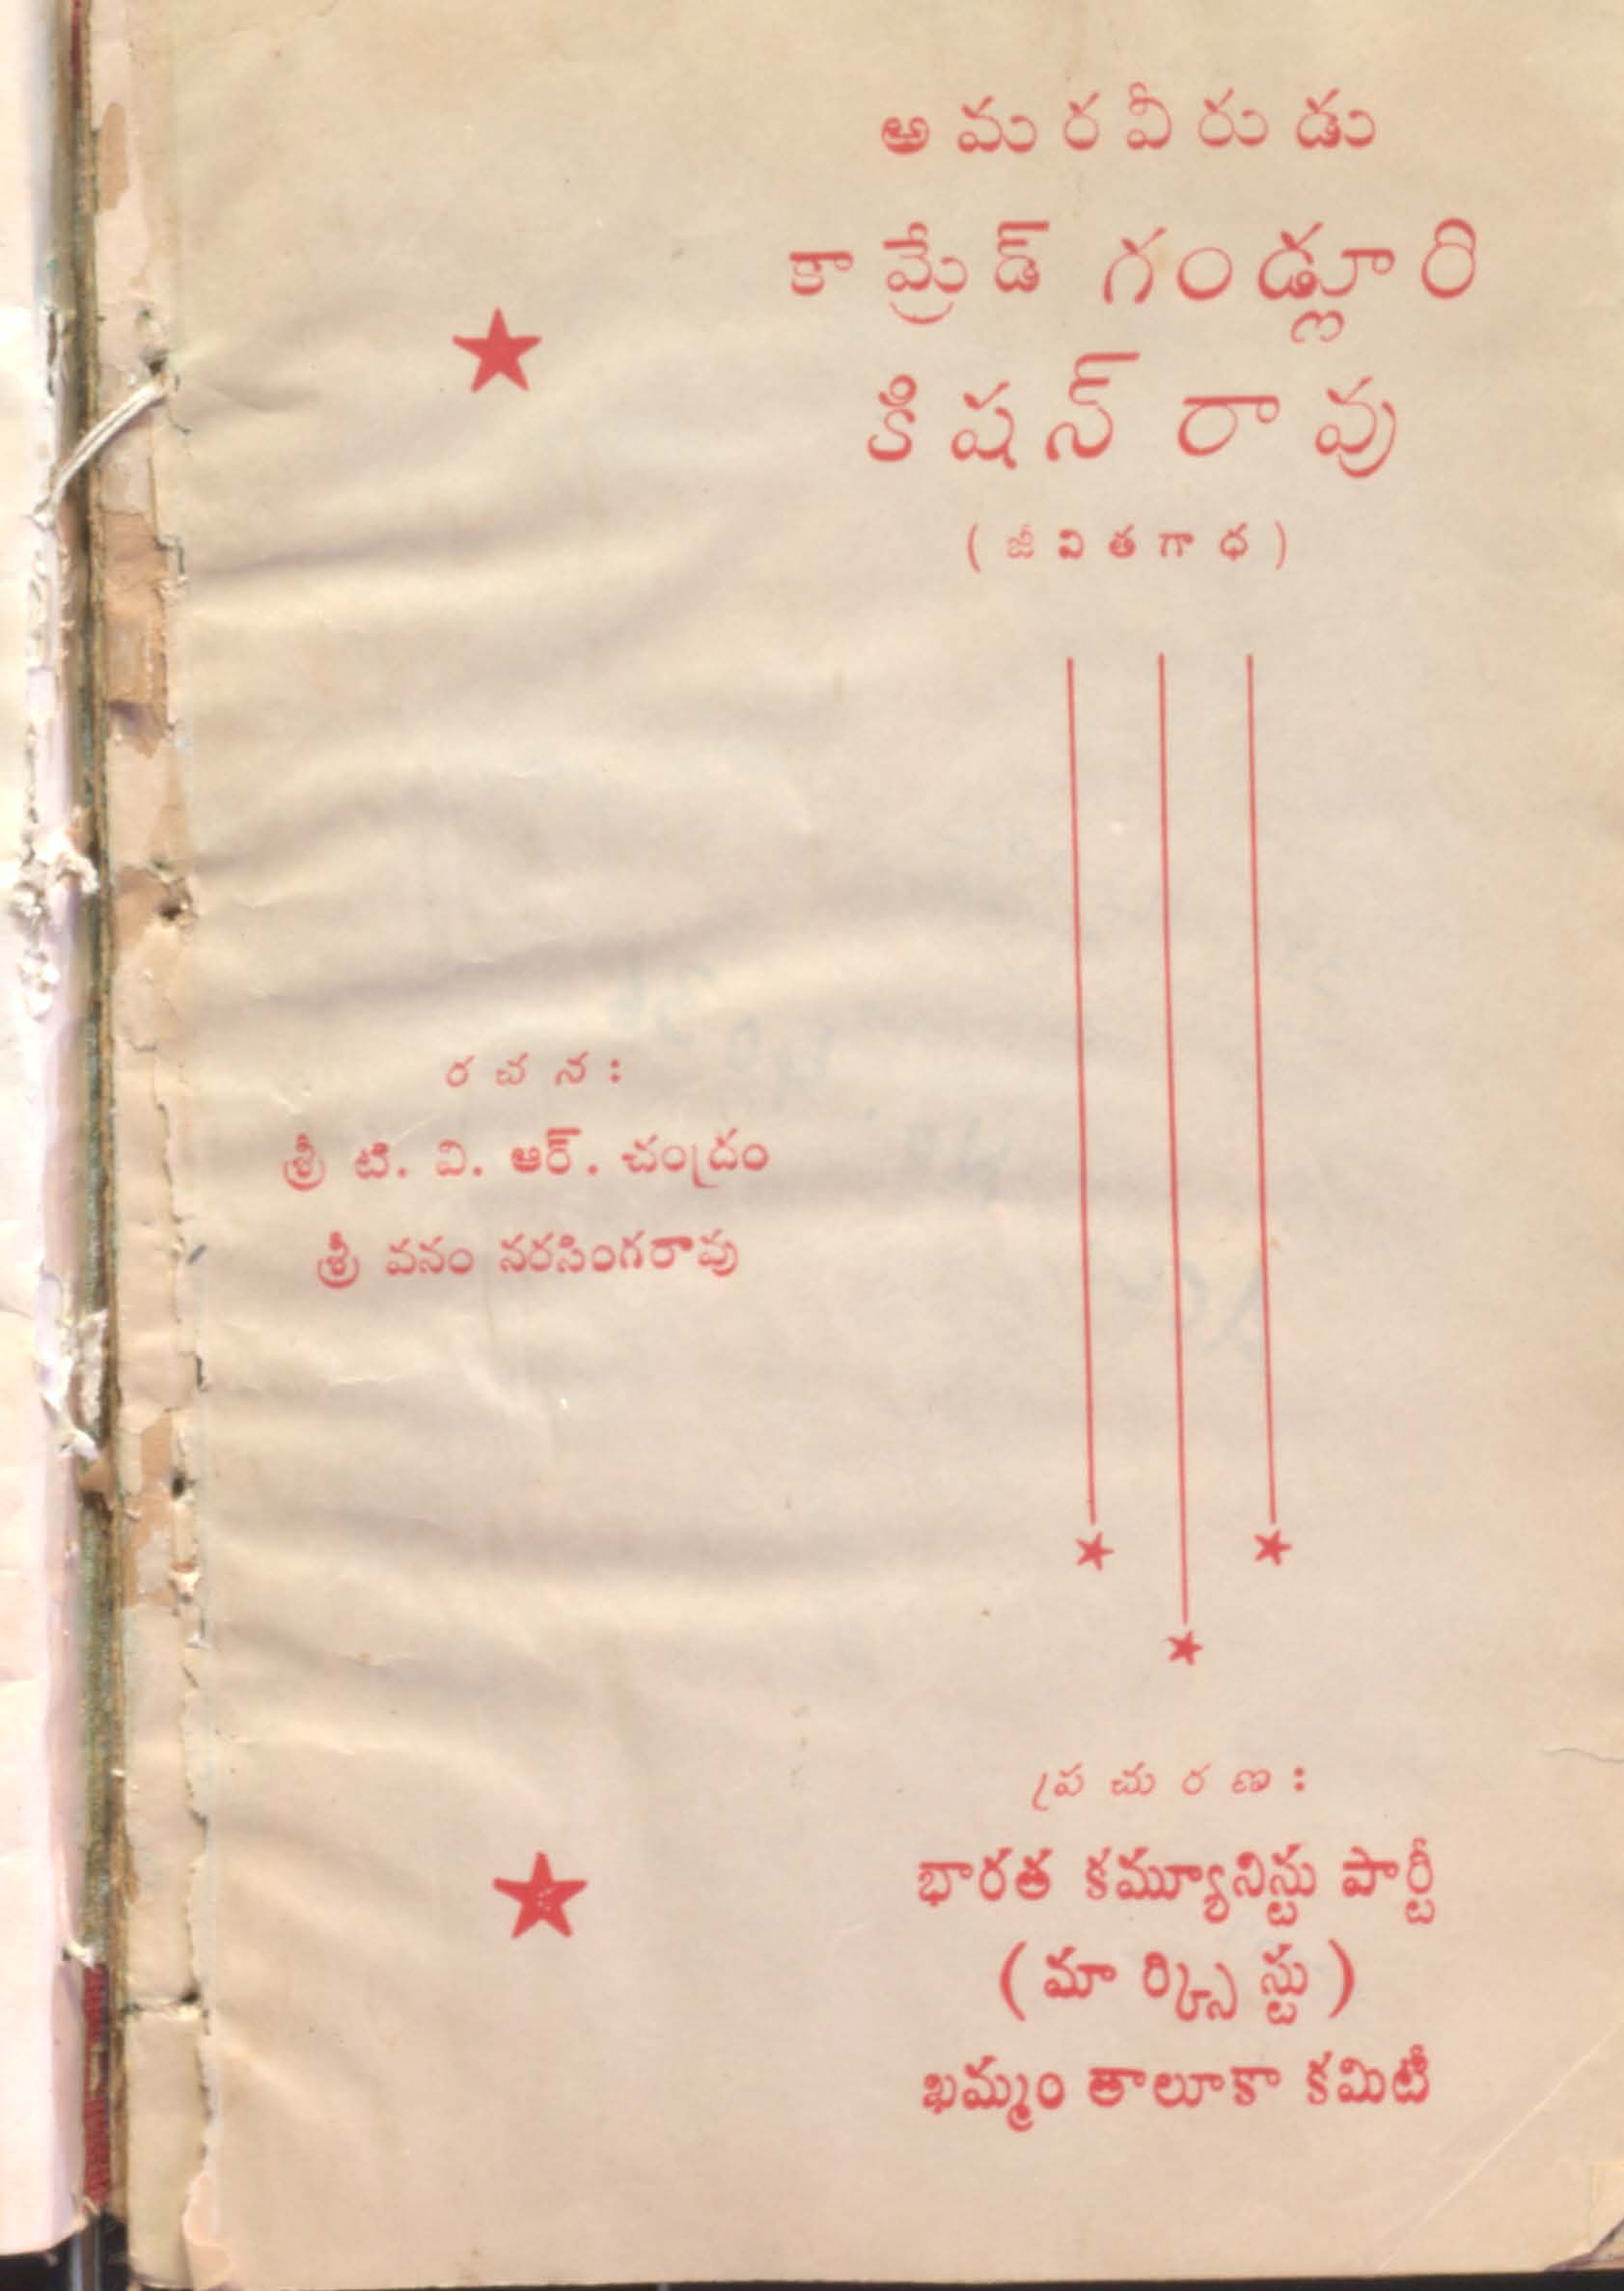 అమరవీరుడు
కామ్రేడ్ గండ్లూరి
కిషన్ రావు
(జీవితగాధ)
రచన :
శ్రీ టి. వి. ఆర్. చంద్రం
శ్రీ వనం నరసింగరావు
ప్రచురణ :
భారత కమ్యూనిస్టు పార్టీ
(మార్క్సిస్టు)
ఖమ్మం తాలూకా కమిటీ